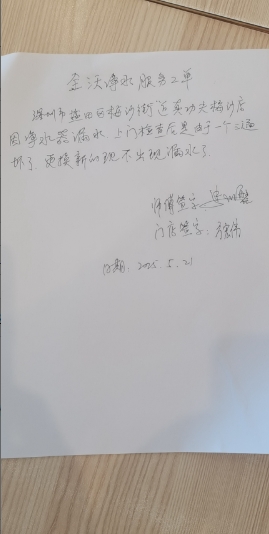 净水服务工单
深圳市盐田区梅沙街道真功夫梅沙店
因净水器漏水,上门检查后是由于一个三通
坏了,更换新的现不出现漏水了.
师傅签字:
门店签字:
日期:2025.5.21